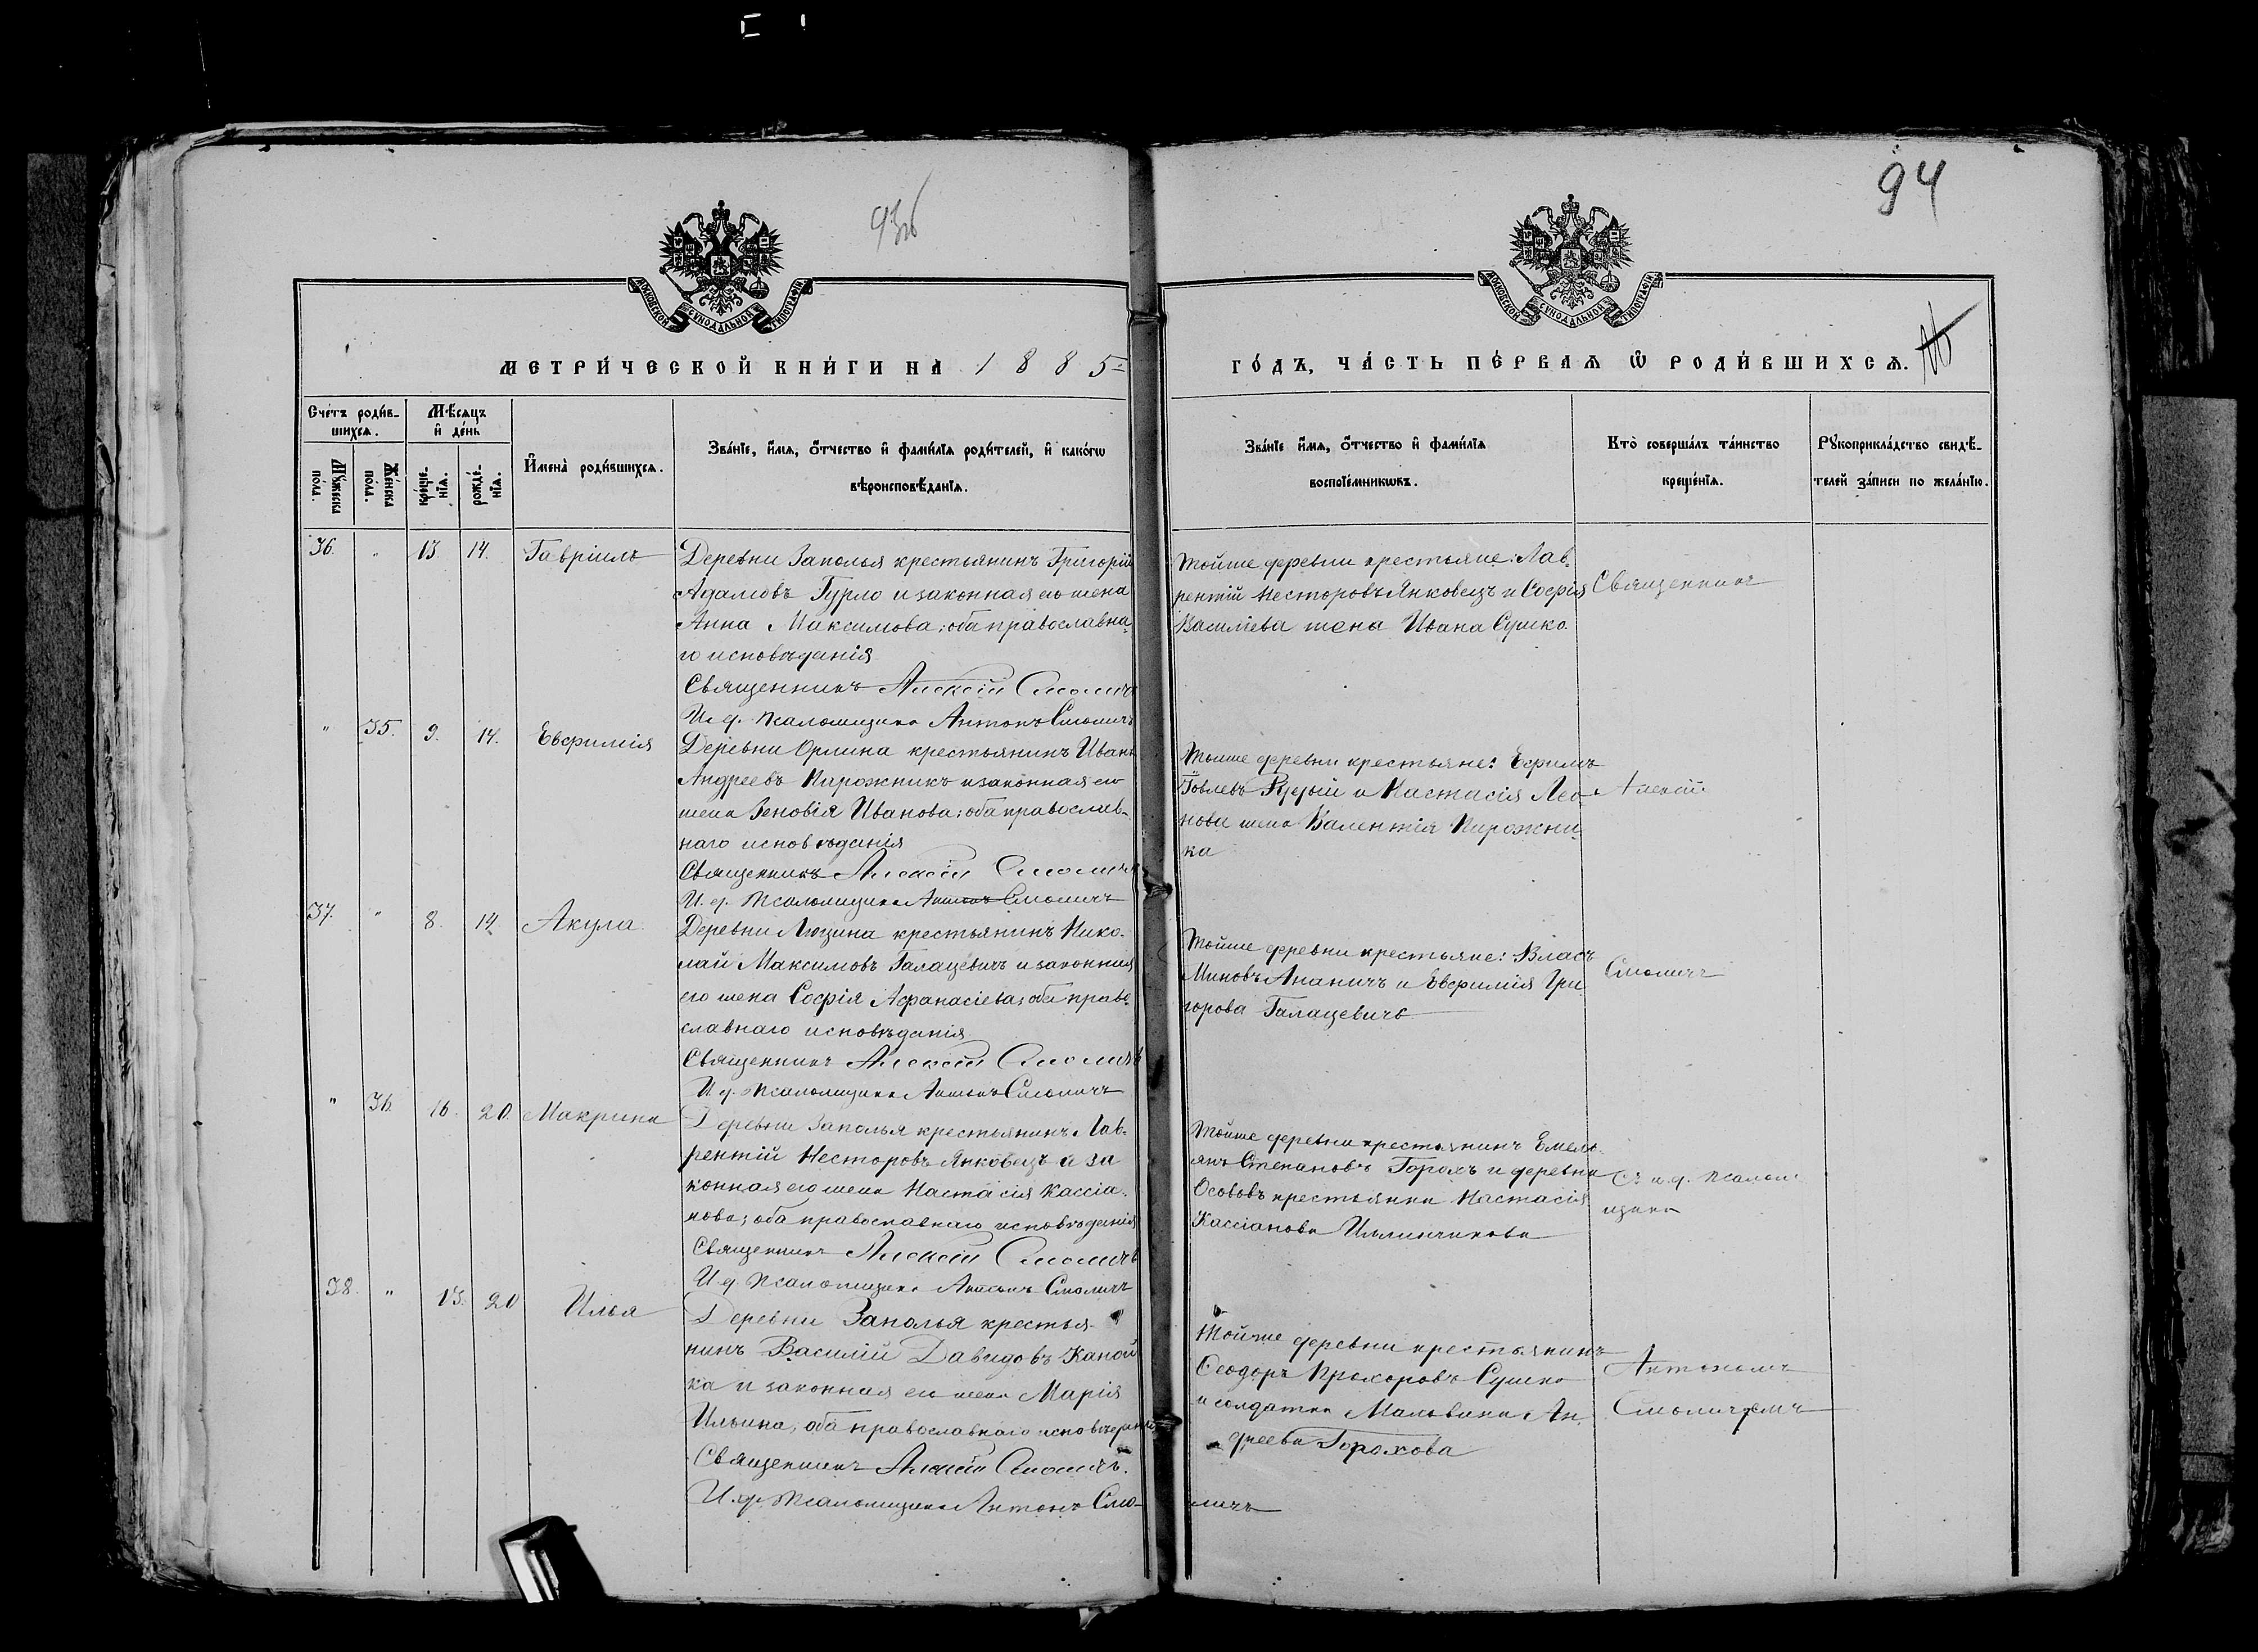 93об
94
МОСКОВСКОЙ СѴНОДАЛЬНОЙ ТИПОГРАФІИ
МОСКОВСКОЙ СѴНОДАЛЬНОЙ ТИПОГРАФІИ
МЕТРИ́ЧЕСКОЙ КНИ́ГИ НА 1885
ГО́ДЪ, ЧА́СТЬ ПЕ́РВАѦ Ѡ҆ РОДИ́ВШИХСѦ.
Сче́тъ роди́в-
шихсѧ.
Мѣ́сѧцъ
и҆ де́нь
Мꙋ́жеска
по́ла.
Же́нска
по́ла.
креще́-
нїѧ.
рожде́-
нїѧ.
И҆мена̀ роди́вшихсѧ.
Зва́нїе, и҆́мѧ, ѻ҆́тчество и҆ фами́лїѧ роди́телей, и҆ како́гѡ
вѣроисповѣ́данїѧ.
Зва́нїе и҆́мѧ, ѻ҆́тчество и҆ фами́лїѧ
воспрїе́мникѡвъ.
Кто̀ соверша́лъ та́инство
креще́нїѧ.
Рꙋкоприкла́дство свидѣ́-
телей за́писи по жела́нїю.
36. " 13. 14. Гавріилъ
Деревни Заполья крестьянинъ Григорій
Адамовъ Гурло и законная его жена
Анна Максимова; оба православна-
го исповѣданія
Священникъ Алексій Смоличъ
И. д. псаломщика Антонъ Смоличъ
Тойже деревни крестьяне: Лав-
рентій Несторовъ Янковецъ и Софія
Василіева жена Ивана Сушко.
Священникъ
" 35. 9. 14. Евфимія
Деревни Орлина крестьянинъ Иванъ
Андреевъ Пирожникъ и законная его
жена Зеновія Иванова; оба православ-
наго исповѣданія
Священникъ Алексій Смоличъ
И. д. псаломщика Антонъ Смоличъ
Тойже деревни крестьяне: Ефимъ
Іовлевъ и Настасія Лео-
нова жена Валентія Пирожни-
ка
Алексій
37. " 8. 14. Акула.
Деревни Люцина крестьянинъ Нико-
лай Максимовъ Галацевичъ и законная
его жена Софія Афанасіева; оба право-
славнаго исповѣданія
Священникъ Алексій Смоличъ
И. д. псаломщика Антонъ Смоличъ
Тойже деревни крестьяне: Власъ
Миновъ Ананичъ и Евфимія Гри-
горова Галацевичъ
Смоличъ
" 36. 16. 20. Макрина
Деревни Заполья крестьянинъ Лав-
рентій Несторовъ Янковецъ и за
конная его жена Настасія Кассіа-
нова; оба православнаго исповѣданія
Священникъ Алексій Смоличъ
И. д. псаломщика Антонъ Смоличъ
Тойже деревни крестьянинъ Емель-
янъ Степановъ Горохъ и деревни
Осововъ крестьянка Настасія
Кассіанова
Съ и. д. псалом-
щика
38. " 13. 20 Илья
Деревни Заполья крестья-
нинъ Василій Давидовъ Капой
ка и законная его жена Марія
Ильина; оба православнаго исповѣданія
Священникъ Алексій Смоличъ.
И. д. псаломщика Антонъ Смо-
личъ
Тойже деревни крестьянинъ
Ѳеодоръ Прохоровъ Сушко
и солдатка Мальвина Ан-
дреева Горохова
Антономъ
Смоличемъ